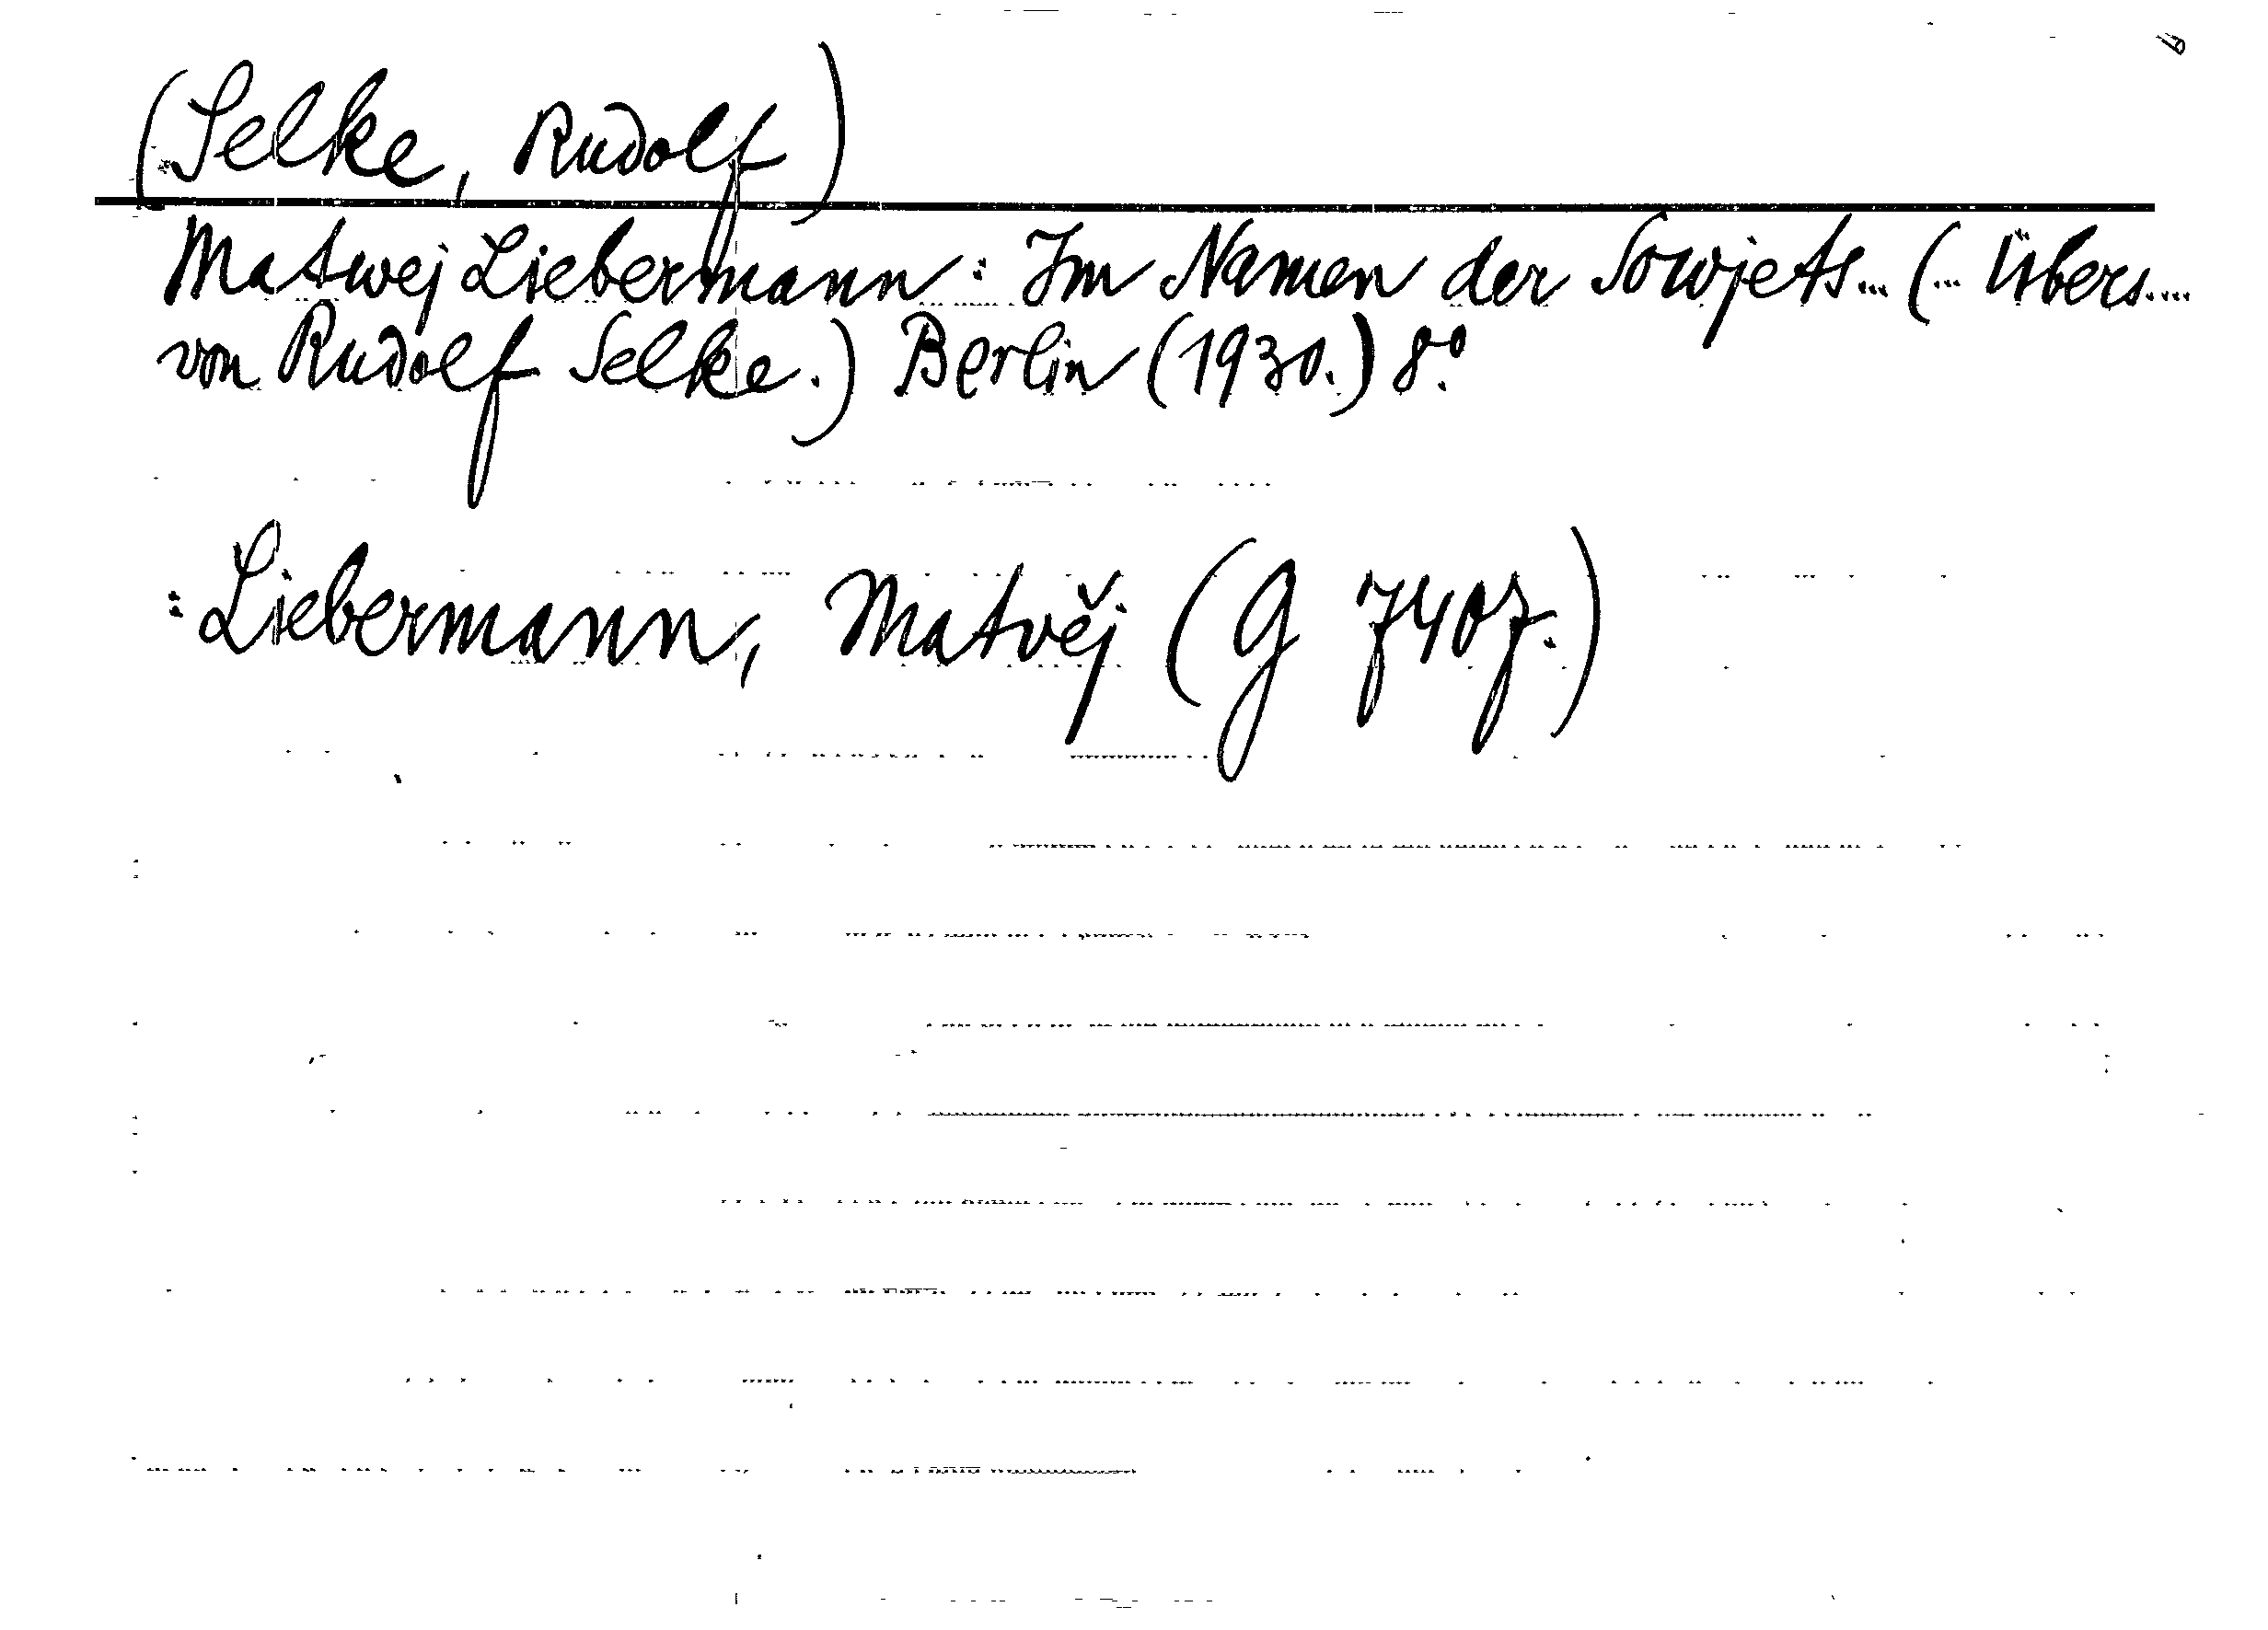 (Selke, Rudolf)
Matwej Liebermann: Im Namen der Sowjets... (... Übers....
von Rudolf Selke.) Berlin (1930.) 8.º
: Liebermann, Matvěj (G 7407.)